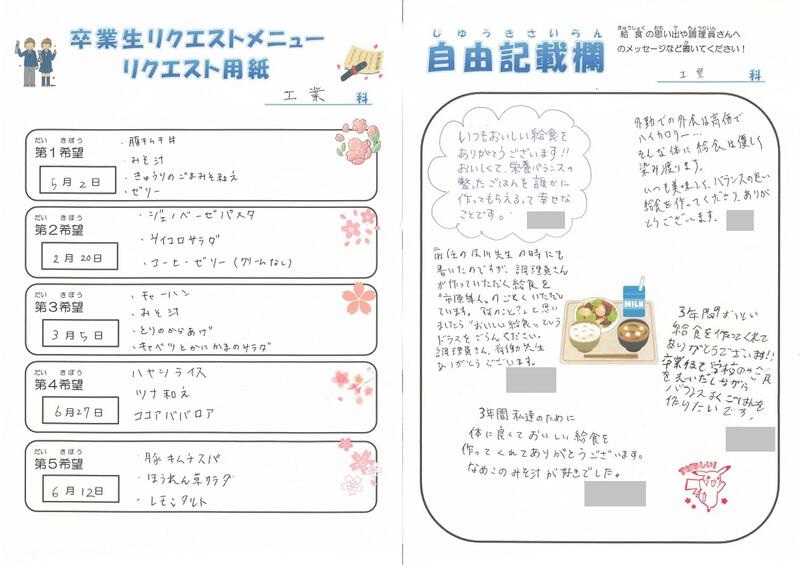 卒業生リクエストメニュー
リクエスト用紙
工業 科
だい きぼう
第1希望
5月2日
・豚キムチ丼
・みそ汁
・きゅうりのごまみそ和え
・ゼリー
だい きぼう
第2希望
2月20日
・ジェノベーゼパスタ
・サイコロサラダ
・コーヒーゼリー(クリームなし)
だい きぼう
第3希望
3月5日
・チャーハン
・みそ汁
・とりのからあげ
・キャベツとかにかまのサラダ
だい きぼう
第4希望
6月27日
ハヤシライス
ツナ和え
ココアババロア
だい きぼう
第5希望
6月12日
・豚キムチスパ
・ほうれん草サラダ
・レモンタルト
じゆうきさいらん
自由記載欄
きゅうしょく おも で ちょうりいん
給食の思い出や調理員さんへ
のメッセージなど書いてください!
工業 科
いつもおいしい給食を
ありがとうございます!!
おいしくて、栄養バランスの
整ったごはんを誰かに
作ってもらえるって幸せな
ことです。
外勤での外食は高価で
ハイカロリー…
そんな体に給食は優しく
染み渡ります。
いつも美味しく、バランスの良い
給食を作ってくださり、ありが
とうございます。
前任の及川先生の時にも
書いたのですが、調理員さん
が作っていただく給食を
"市原隼人"のごとくいただい
ています。「何のこと?」と思い
ましたら"おいしい給食"という
ドラマをごらんください。
調理員さん、有働先生
ありがとうございます。
MILK
3年間おいしい
給食を作ってくれて
ありがとうございます!!
卒業後も学校のご飯
を思いだしながら
バランスよくごはんを
作りたいです。
3年間私達のために
体に良くておいしい給食を
作ってくれてありがとうございます。
なめこのみそ汁が好きでした。